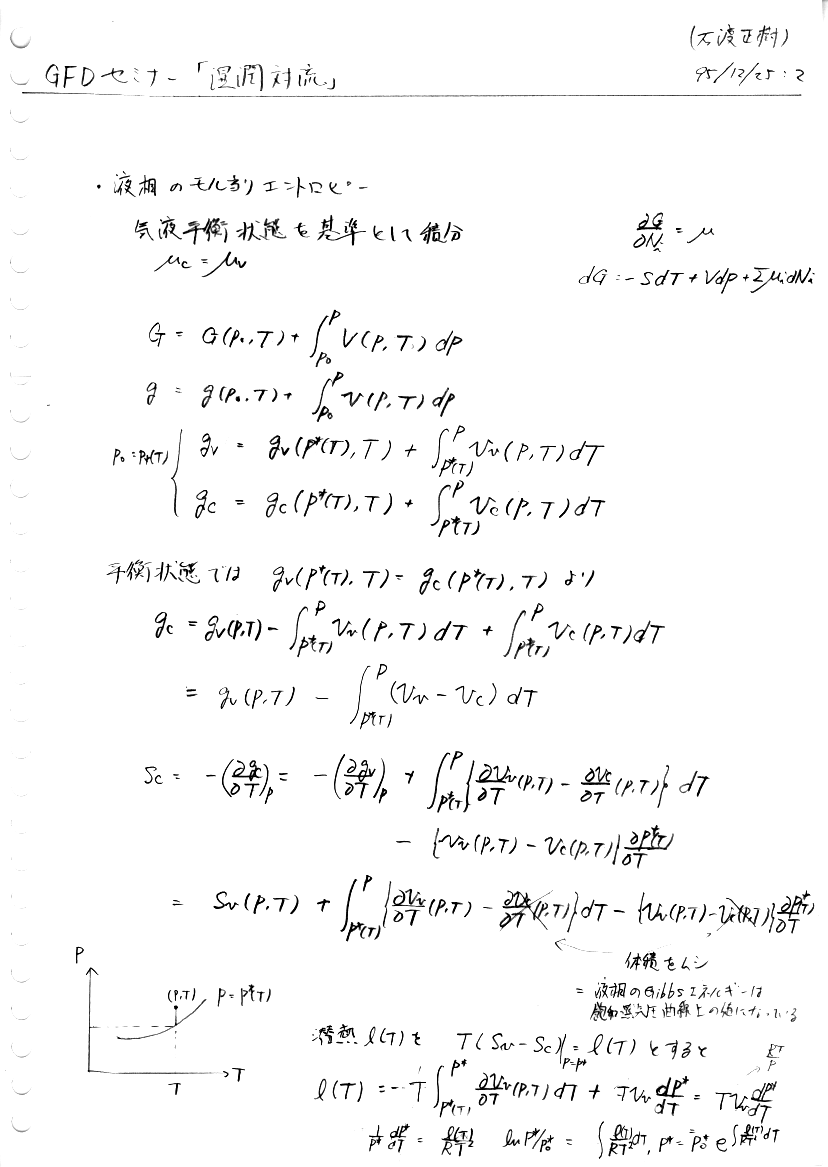 (石渡正樹)
GFDセミナー「湿潤対流」 95/12/25:2
・液相のモル当りエントロピー
気液平衡状態を基準として積分
μc = μv
∂G/∂Ni = μ
dG = -SdT + Vdp + Σμi dNi
G = G(p0,T) + ∫_{p0}^{p} V(p,T) dp
g = g(p0,T) + ∫_{p0}^{p} v(p,T) dp
p0 = p*(T) { gv = gv(p*(T),T) + ∫_{p*(T)}^{p} vv(p,T) dT
gc = gc(p*(T),T) + ∫_{p*(T)}^{p} vc(p,T) dT
平衡状態では gv(p*(T),T) = gc(p*(T),T) より
gc = gv(p,T) - ∫_{p*(T)}^{p} vv(p,T) dT + ∫_{p*(T)}^{p} vc(p,T) dT
= gv(p,T) - ∫_{p*(T)}^{p} (vv - vc) dT
Sc = -(∂gc/∂T)p = -(∂gv/∂T)p + ∫_{p*(T)}^{p} {∂vv/∂T (p,T) - ∂vc/∂T (p,T)} dT
- {vv(p,T) - vc(p,T)} ∂p*(T)/∂T
= Sv(p,T) + ∫_{p*(T)}^{p} {∂vv/∂T (p,T) - ∂vc/∂T (p,T)} dT - {vv(p,T) - vc(p,T)} ∂p*(T)/∂T
体積をムシ
= 液相のGibbsエネルギーは
飽和蒸気圧曲線上の値になっている
P
(p,T) p = p*(T)
T → T
潜熱 l(T) を T(Sv - Sc)|_{p=p*} = l(T) とすると
RT/p
l(T) = -T ∫_{p*(T)}^{p*} ∂vv/∂T (p,T) dT + Tvv dp*/dT = Tvv dp*/dT
1/p* dp*/dT = l(T)/RT² ln p*/p0* = ∫ l(T)/RT² dT, p* = p0* e^{∫ l(T)/RT² dT}